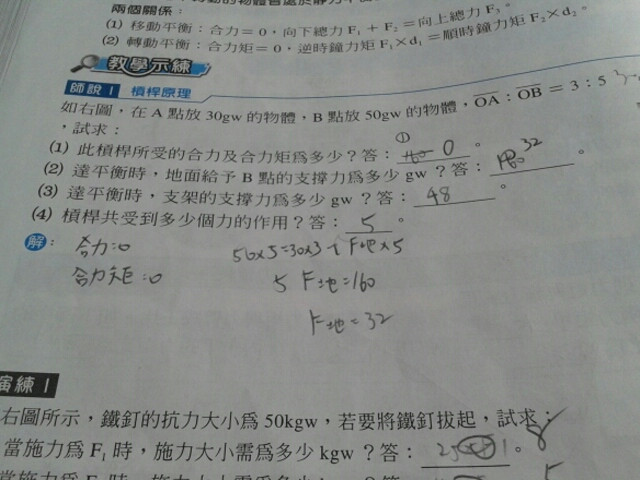 兩個關係：
(1) 移動平衡：合力＝0，向下總力F₁＋F₂＝向上總力F₃。
(2) 轉動平衡：合力矩＝0，逆時鐘力矩F₁×d₁＝順時鐘力矩F₂×d₂。
教學示練
師說 1 槓桿原理
如右圖，在A點放30gw的物體，B點放50gw的物體，OA：OB＝3：5
，試求：
(1) 此槓桿所受的合力及合力矩為多少？答：① 0 。
(2) 達平衡時，地面給予B點的支撐力為多少gw？答：32 。
(3) 達平衡時，支架的支撐力為多少gw？答：48 。
(4) 槓桿共受到多少個力的作用？答：5 。
解：合力=0 50×5=30×3+F地×5
合力矩=0 5 F地=160
F地=32
演練 1
右圖所示，鐵釘的抗力大小為50kgw，若要將鐵釘拔起，試求：
當施力為F₁時，施力大小需為多少kgw？答：25 。